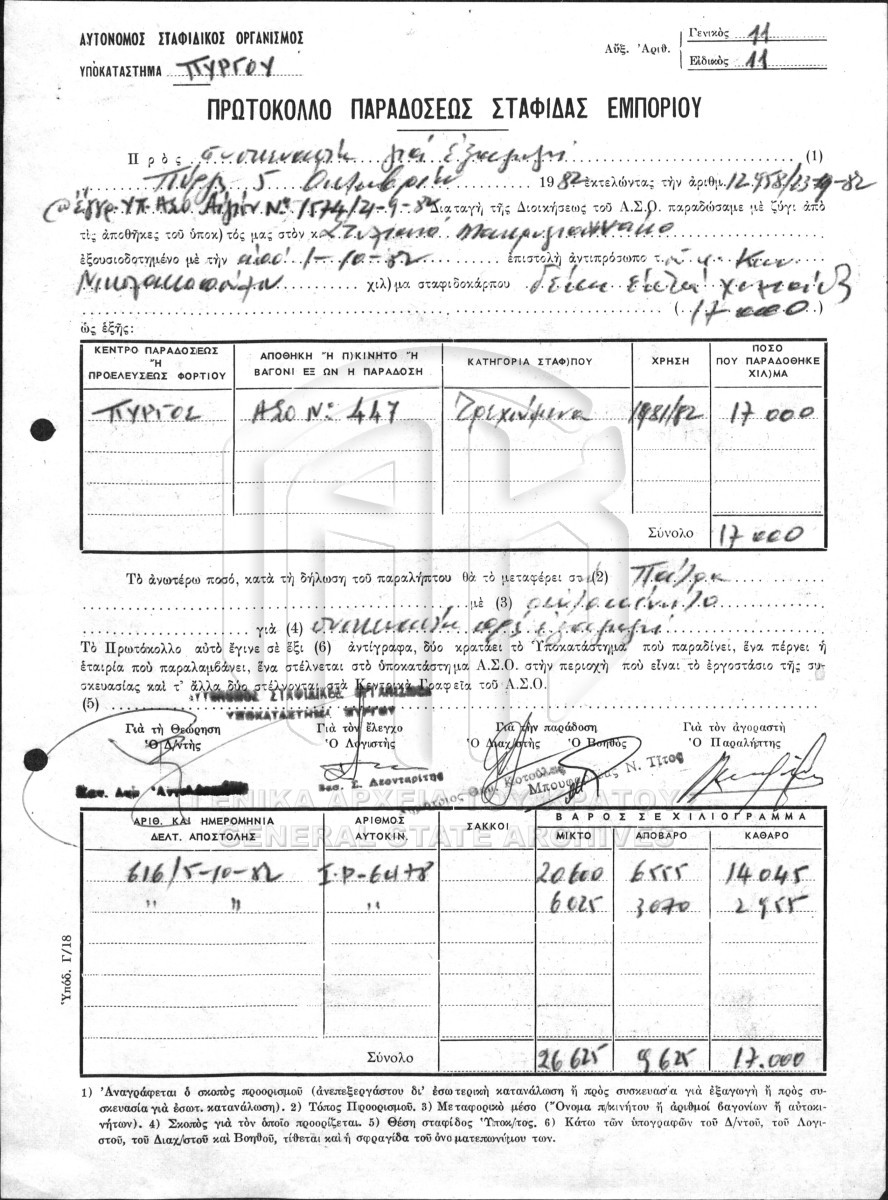 ΑΥΤΟΝΟΜΟΣ ΣΤΑΦΙΔΙΚΟΣ ΟΡΓΑΝΙΣΜΟΣ
ΥΠΟΚΑΤΑΣΤΗΜΑ ΠΥΡΓΟΥ
Αὔξ. Ἀριθ.
Γενικὸς 11
Εἰδικὸς 11
ΠΡΩΤΟΚΟΛΛΟ ΠΑΡΑΔΟΣΕΩΣ ΣΤΑΦΙΔΑΣ ΕΜΠΟΡΙΟΥ
Πρὸς συσκευασία γιά ἐξαγωγή (1)
Πύργ 5 Ὀκτωβρίου 1982 ἐκτελώντας τὴν ἀριθμ. 12.958/23-9-82
ἔγγρ. ΥΠ ΑΣΟ Αἰγίου Νο 1574/21-9-82 Διαταγὴ τῆς Διοικήσεως τοῦ Α.Σ.Ο. παραδώσαμε μὲ ζύγι ἀπὸ
τὶς ἀποθῆκες τοῦ ὑποκ)τός μας στὸν κ. Στυλιανό Μακρυγιαννάκο
ἐξουσιοδοτημένο μὲ τὴν ἀπό 1-10-82 ἐπιστολὴ ἀντιπρόσωπο τ
Νικολακόπουλου χιλ)μα σταφιδοκάρπου δέκα ἑπτά χιλιάδες
(17000)
ὡς ἑξῆς:
ΚΕΝΤΡΟ ΠΑΡΑΔΟΣΕΩΣ Ἢ ΠΡΟΕΛΕΥΣΕΩΣ ΦΟΡΤΙΟΥ
ΑΠΟΘΗΚΗ Ἢ Π)ΚΙΝΗΤΟ Ἢ ΒΑΓΟΝΙ ΕΞ ΩΝ Η ΠΑΡΑΔΟΣΗ
ΚΑΤΗΓΟΡΙΑ ΣΤΑΦ)ΠΟΥ
ΧΡΗΣΗ
ΠΟΣΟ ΠΟΥ ΠΑΡΑΔΟΘΗΚΕ ΧΙΛ)ΜΑ
ΠΥΡΓΟΣ ΑΣΟ Νο 447 Τρεχούμενα 1981/82 17000
Σύνολο 17000
Τὸ ἀνωτέρω ποσό, κατὰ τὴ δήλωση τοῦ παραλήπτου θὰ τὸ μεταφέρει στ (2) Πάτρα
μὲ (3) αὐτοκίνητο
γιὰ (4) συσκευασία πρός ἐξαγωγή
Τὸ Πρωτόκολλο αὐτὸ ἔγινε σὲ ἕξι (6) ἀντίγραφα, δύο κρατάει τὸ Ὑποκατάστημα ποὺ παραδίνει, ἕνα πέρνει ἡ
ἑταιρία ποὺ παραλαμβάνει, ἕνα στέλνεται στὸ ὑποκατάστημα Α.Σ.Ο. στὴν περιοχὴ ποὺ εἶναι τὸ ἐργοστάσιο τῆς συ-
σκευασίας καὶ τ' ἄλλα δύο στέλνονται στὰ Κεντρικὰ Γραφεῖα τοῦ Α.Σ.Ο.
(5) ΑΥΤΟΝΟΜΟΣ ΣΤΑΦΙΔΙΚΟΣ ΟΡΓΑΝΙΣΜΟΣ
ΥΠΟΚΑΤΑΣΤΗΜΑ ΠΥΡΓΟΥ
Γιὰ τὴ Θεώρηση Γιὰ τὸν ἔλεγχο Γιὰ τὴν παράδοση Γιὰ τὸν ἀγοραστὴ
Ὁ Δ/ντὴς Ὁ Λογιστὴς Ὁ Διαχ)στὴς Ὁ Βοηθὸς Ὁ Παραλήπτης
Βασ. Σ. Λεονταρίτης
Κοτσάλης
Μπουφαρδέας Ν. Τίτος
ΓΕΝΙΚΑ ΑΡΧΕΙΑ ΤΟΥ ΚΡΑΤΟΥΣ
GENERAL STATE ARCHIVES
ΑΡΙΘ. ΚΑΙ ΗΜΕΡΟΜΗΝΙΑ ΔΕΛΤ. ΑΠΟΣΤΟΛΗΣ
ΑΡΙΘΜΟΣ ΑΥΤΟΚΙΝ.
ΣΑΚΚΟΙ
ΒΑΡΟΣ ΣΕ ΧΙΛΙΟΓΡΑΜΜΑ
ΜΙΚΤΟ ΑΠΟΒΑΡΟ ΚΑΘΑΡΟ
616/5-10-82 Ι.Ρ-6478 20600 6555 14045
" " " 6025 3070 2955
Σύνολο 26625 9625 17.000
Ὑπόδ. Γ/18
1) Ἀναγράφεται ὁ σκοπὸς προορισμοῦ (ἀνεπεξεργάστου δι' ἐσωτερικὴ κατανάλωση ἢ πρὸς συσκευασία γιὰ ἐξαγωγὴ ἢ πρὸς συ-
σκευασία γιὰ ἐσωτ. κατανάλωση). 2) Τόπος Προορισμοῦ. 3) Μεταφορικὸ μέσο (Ὄνομα π/κινήτου ἢ ἀριθμοὶ βαγονίων ἢ αὐτοκι-
νήτων). 4) Σκοπὸς γιὰ τὸν ὁποῖο προορίζεται. 5) Θέση σταφίδος Ὑποκ/τος. 6) Κάτω τῶν ὑπογραφῶν τοῦ Δ/ντοῦ, τοῦ Λογι-
στοῦ, τοῦ Διαχ/στοῦ καὶ Βοηθοῦ, τίθεται καὶ ἡ σφραγίδα τοῦ ὀνοματεπωνύμου των.